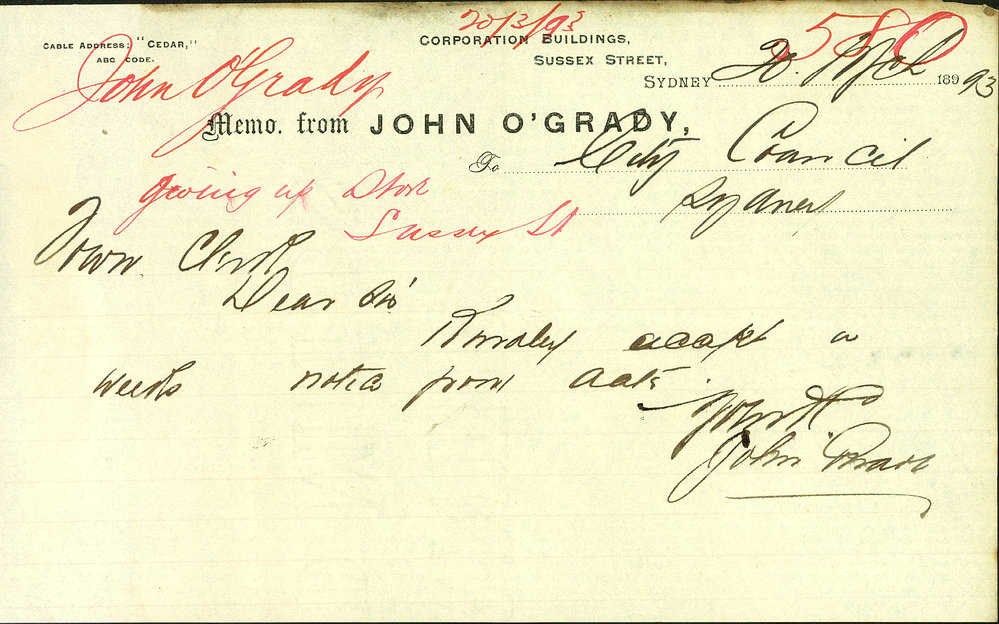 20/3/93
580
CABLE ADDRESS: "CEDAR,"
ABC CODE.
CORPORATION BUILDINGS,
SUSSEX STREET,
SYDNEY 20. Mch 1893
John O'Grady
Memo. from JOHN O'GRADY,
To City Council
Sydney
giving up Stor
Sussex St
Town Clerk
Dear Sir
Kindley accept a
weeks notice from date.
John O'Grady